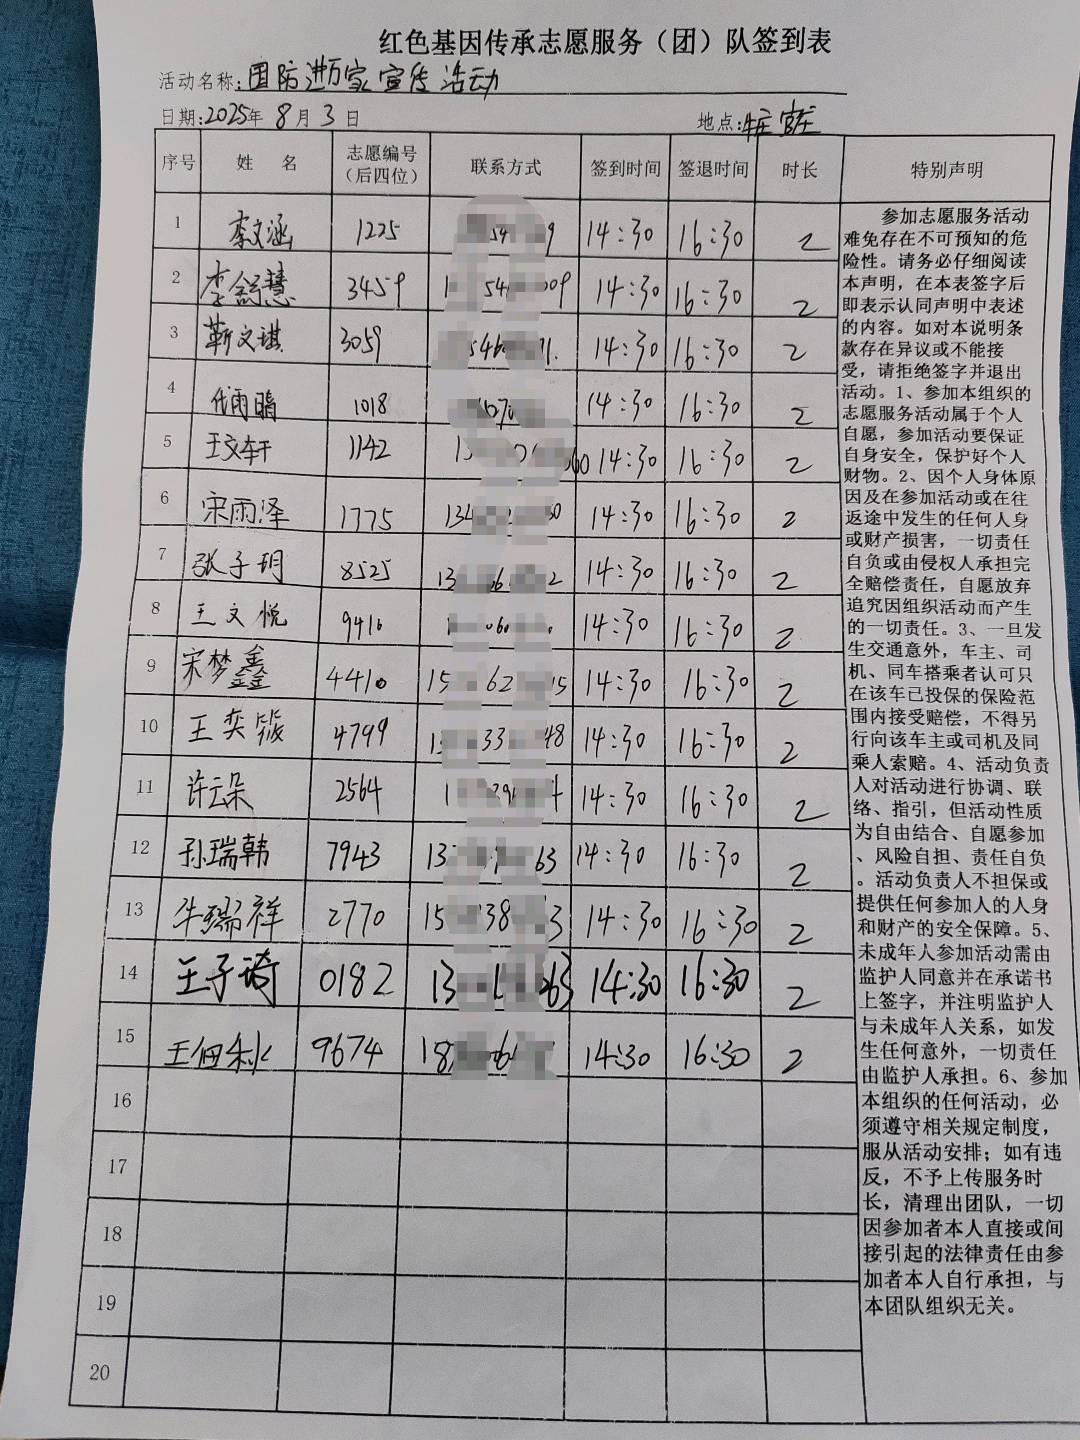 红色基因传承志愿服务（团）队签到表
活动名称：国防进万家宣传活动
日期：2025年8月3日 地点：
序号 姓名 志愿编号（后四位） 联系方式 签到时间 签退时间 时长 特别声明
1 李文涵 1225 14:30 16:30 2
2 李舒慧 3459 14:30 16:30 2
3 靳文琪 3059 14:30 16:30 2
4 代雨晴 1018 14:30 16:30 2
5 王文轩 1142 14:30 16:30 2
6 宋雨泽 1775 134 14:30 16:30 2
7 张子玥 8525 14:30 16:30 2
8 王文悦 9410 14:30 16:30 2
9 宋梦鑫 4410 15 62 15 14:30 16:30 2
10 王奕筱 4799 33 48 14:30 16:30 2
11 许云朵 2564 14:30 16:30 2
12 孙瑞韩 7943 13 63 14:30 16:30 2
13 牛瑞祥 2770 15 38 3 14:30 16:30 2
14 王子琦 0182 13 63 14:30 16:30 2
15 王佃 9674 18 6 14:30 16:30 2
16
17
18
19
20
参加志愿服务活动
难免存在不可预知的危
险性。请务必仔细阅读
本声明，在本表签字后
即表示认同声明中表述
的内容。如对本说明条
款存在异议或不能接
受，请拒绝签字并退出
活动。1、参加本组织的
志愿服务活动属于个人
自愿，参加活动要保证
自身安全，保护好个人
财物。2、因个人身体原
因及在参加活动或在往
返途中发生的任何人身
或财产损害，一切责任
自负或由侵权人承担完
全赔偿责任，自愿放弃
追究因组织活动而产生
的一切责任。3、一旦发
生交通意外，车主、司
机、同车搭乘者认可只
在该车已投保的保险范
围内接受赔偿，不得另
行向该车主或司机及同
乘人索赔。4、活动负责
人对活动进行协调、联
络、指引，但活动性质
为自由结合、自愿参加
、风险自担、责任自负
。活动负责人不担保或
提供任何参加人的人身
和财产的安全保障。5、
未成年人参加活动需由
监护人同意并在承诺书
上签字，并注明监护人
与未成年人关系，如发
生任何意外，一切责任
由监护人承担。6、参加
本组织的任何活动，必
须遵守相关规定制度，
服从活动安排；如有违
反，不予上传服务时
长，清理出团队，一切
因参加者本人直接或间
接引起的法律责任由参
加者本人自行承担，与
本团队组织无关。